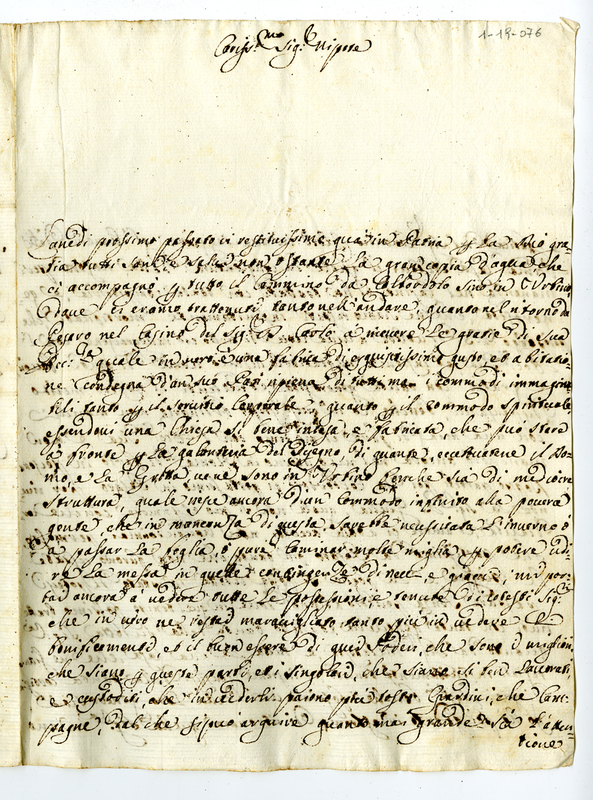 1-19-076
Cariss.mo Sig.r Nipote
prossimo passato ci restituissimo quà in Patria p la Dio gra-
tia tutti sani e salvi non ostante la gran copia d'aqua che
ci accompagnò p tutto il Cammino da sino in Urbino
dove ci eramo trattenuti tanto nell'andare, quanto nel ritorno da
Pesaro nel Casino del Sig.r Carlo à ricevere le gratie di Sua
Ecc.za quale in vero è una fabrica di esquisitissimo gusto et abitatio-
ne condegna d'un suo Pari ripiena di tutti mai i commodi immagina-
bili tanto p il servitio Corporale quanto p il commodo spirituale
essendovi una Chiesa si bene intesa, e fabricata, che può stare
à fronte p la galanteria del disegno, di quante, eccettuatone il Do-
mo, e la Grotta ve ne sono in Urbino benche sia di mediocre
struttura, quale riesce ancora d'un commodo infinito alla povera
gente che in mancanza di questa sarebbe necessitata l'inverno ò
à passar la foglia, ò pure caminar molte miglia p potere udi-
re la messa in quelle contingenze di neve e giacci, mi por-
tai ancora à vedere tutte le possessioni e tenute di cotesti Sig.ri
che in vero ne restai maravigliato tanto più in vedere il
bonificamento, et il buon essere di quei Poderi, che sono i migliori
che siano p queste parti, et i singolari, che siano si ben lavorati
e custoditi, che in vederli paiono più tosto Giardini, che Cam-
pagne, dal che si può arguire quanto mai grande sia l'atten-
tione